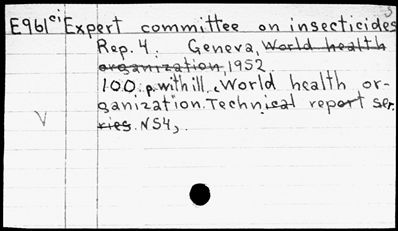 E961ci Expert committee on insecticides
Rep. 4. Geneva, World health
organization, 1952
100 p. with ill. (World health or-
ganization. Technical report ser.
ries. N54).
V